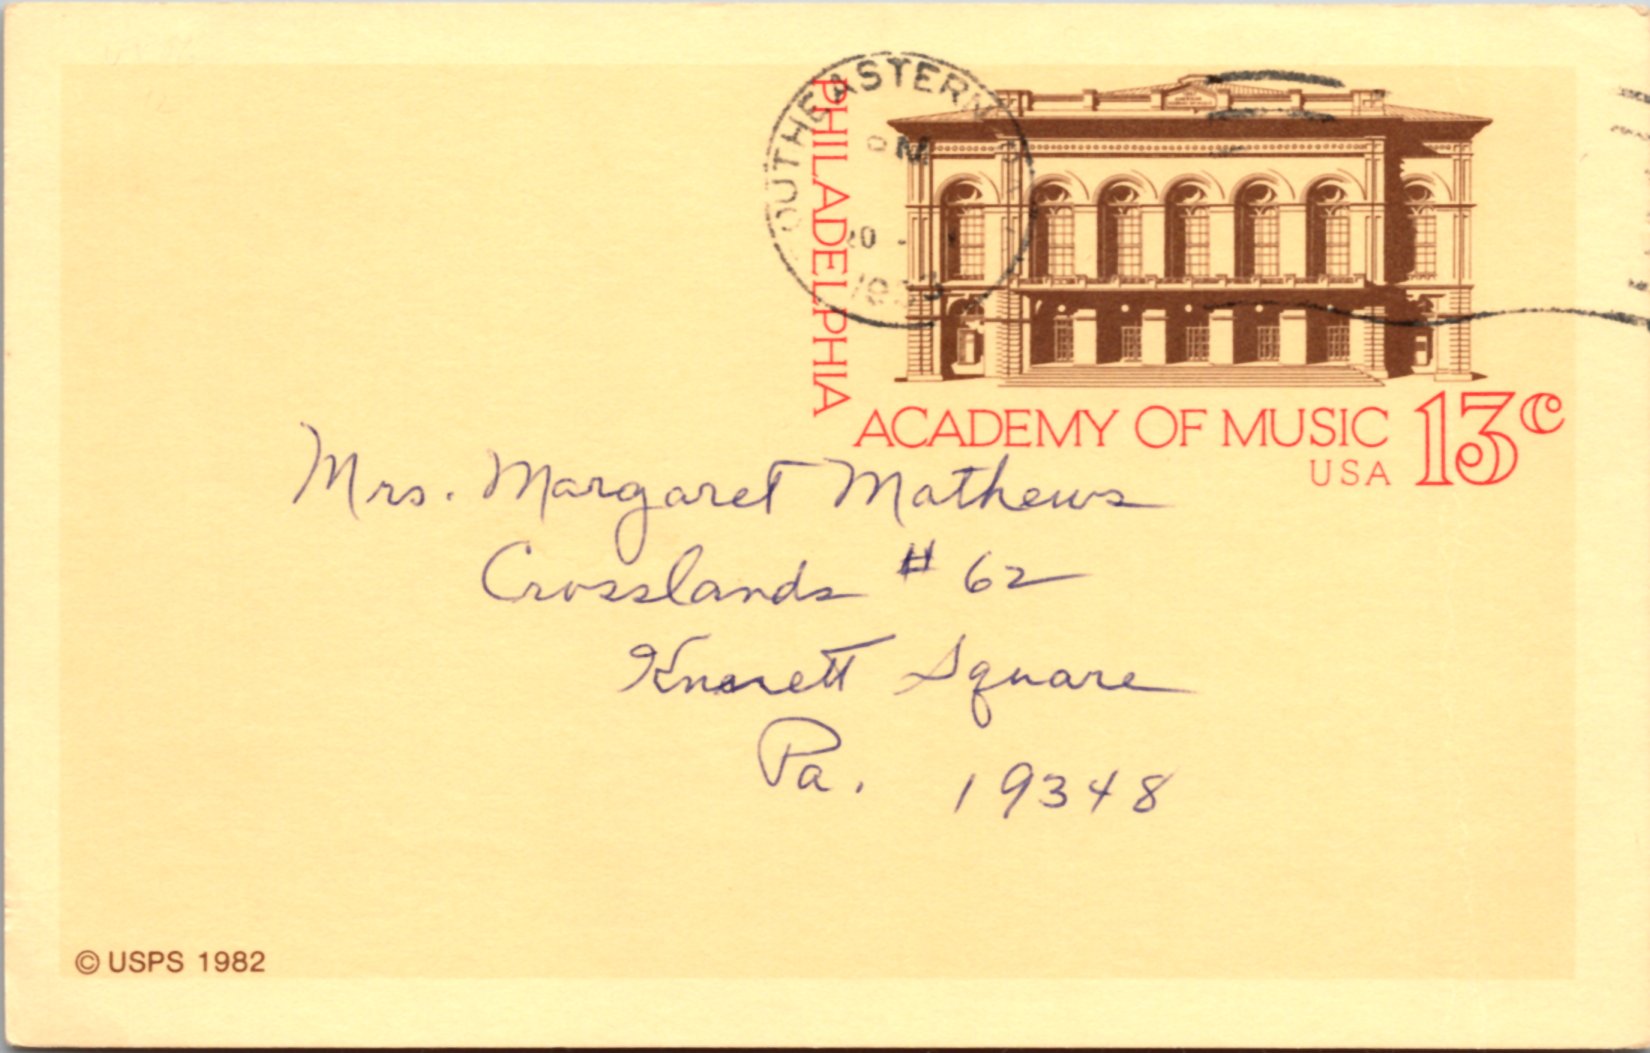 SOUTHEASTERN PA
PM
20
PHILADELPHIA
ACADEMY OF MUSIC 13c
USA
Mrs. Margaret Mathews
Crosslands # 62
Knnett Square
Pa. 19348
© USPS 1982